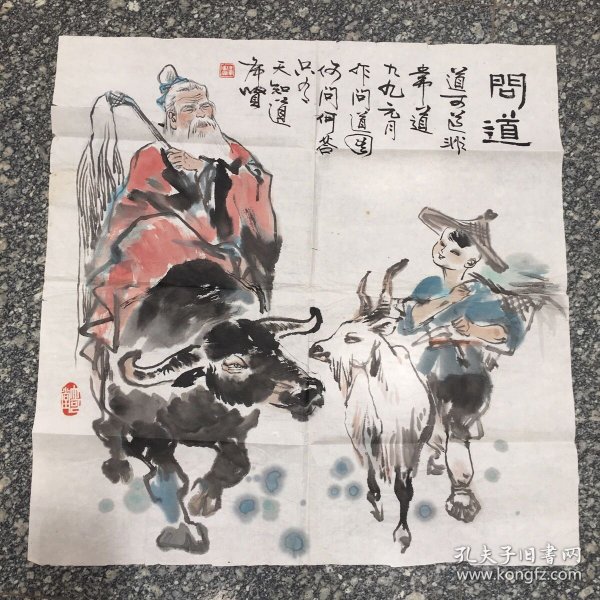 問道
道可道非
常道
九九元月
作问道图
何问何答
只有
天知道
席贤
孔夫子旧书网
www.kongfz.com